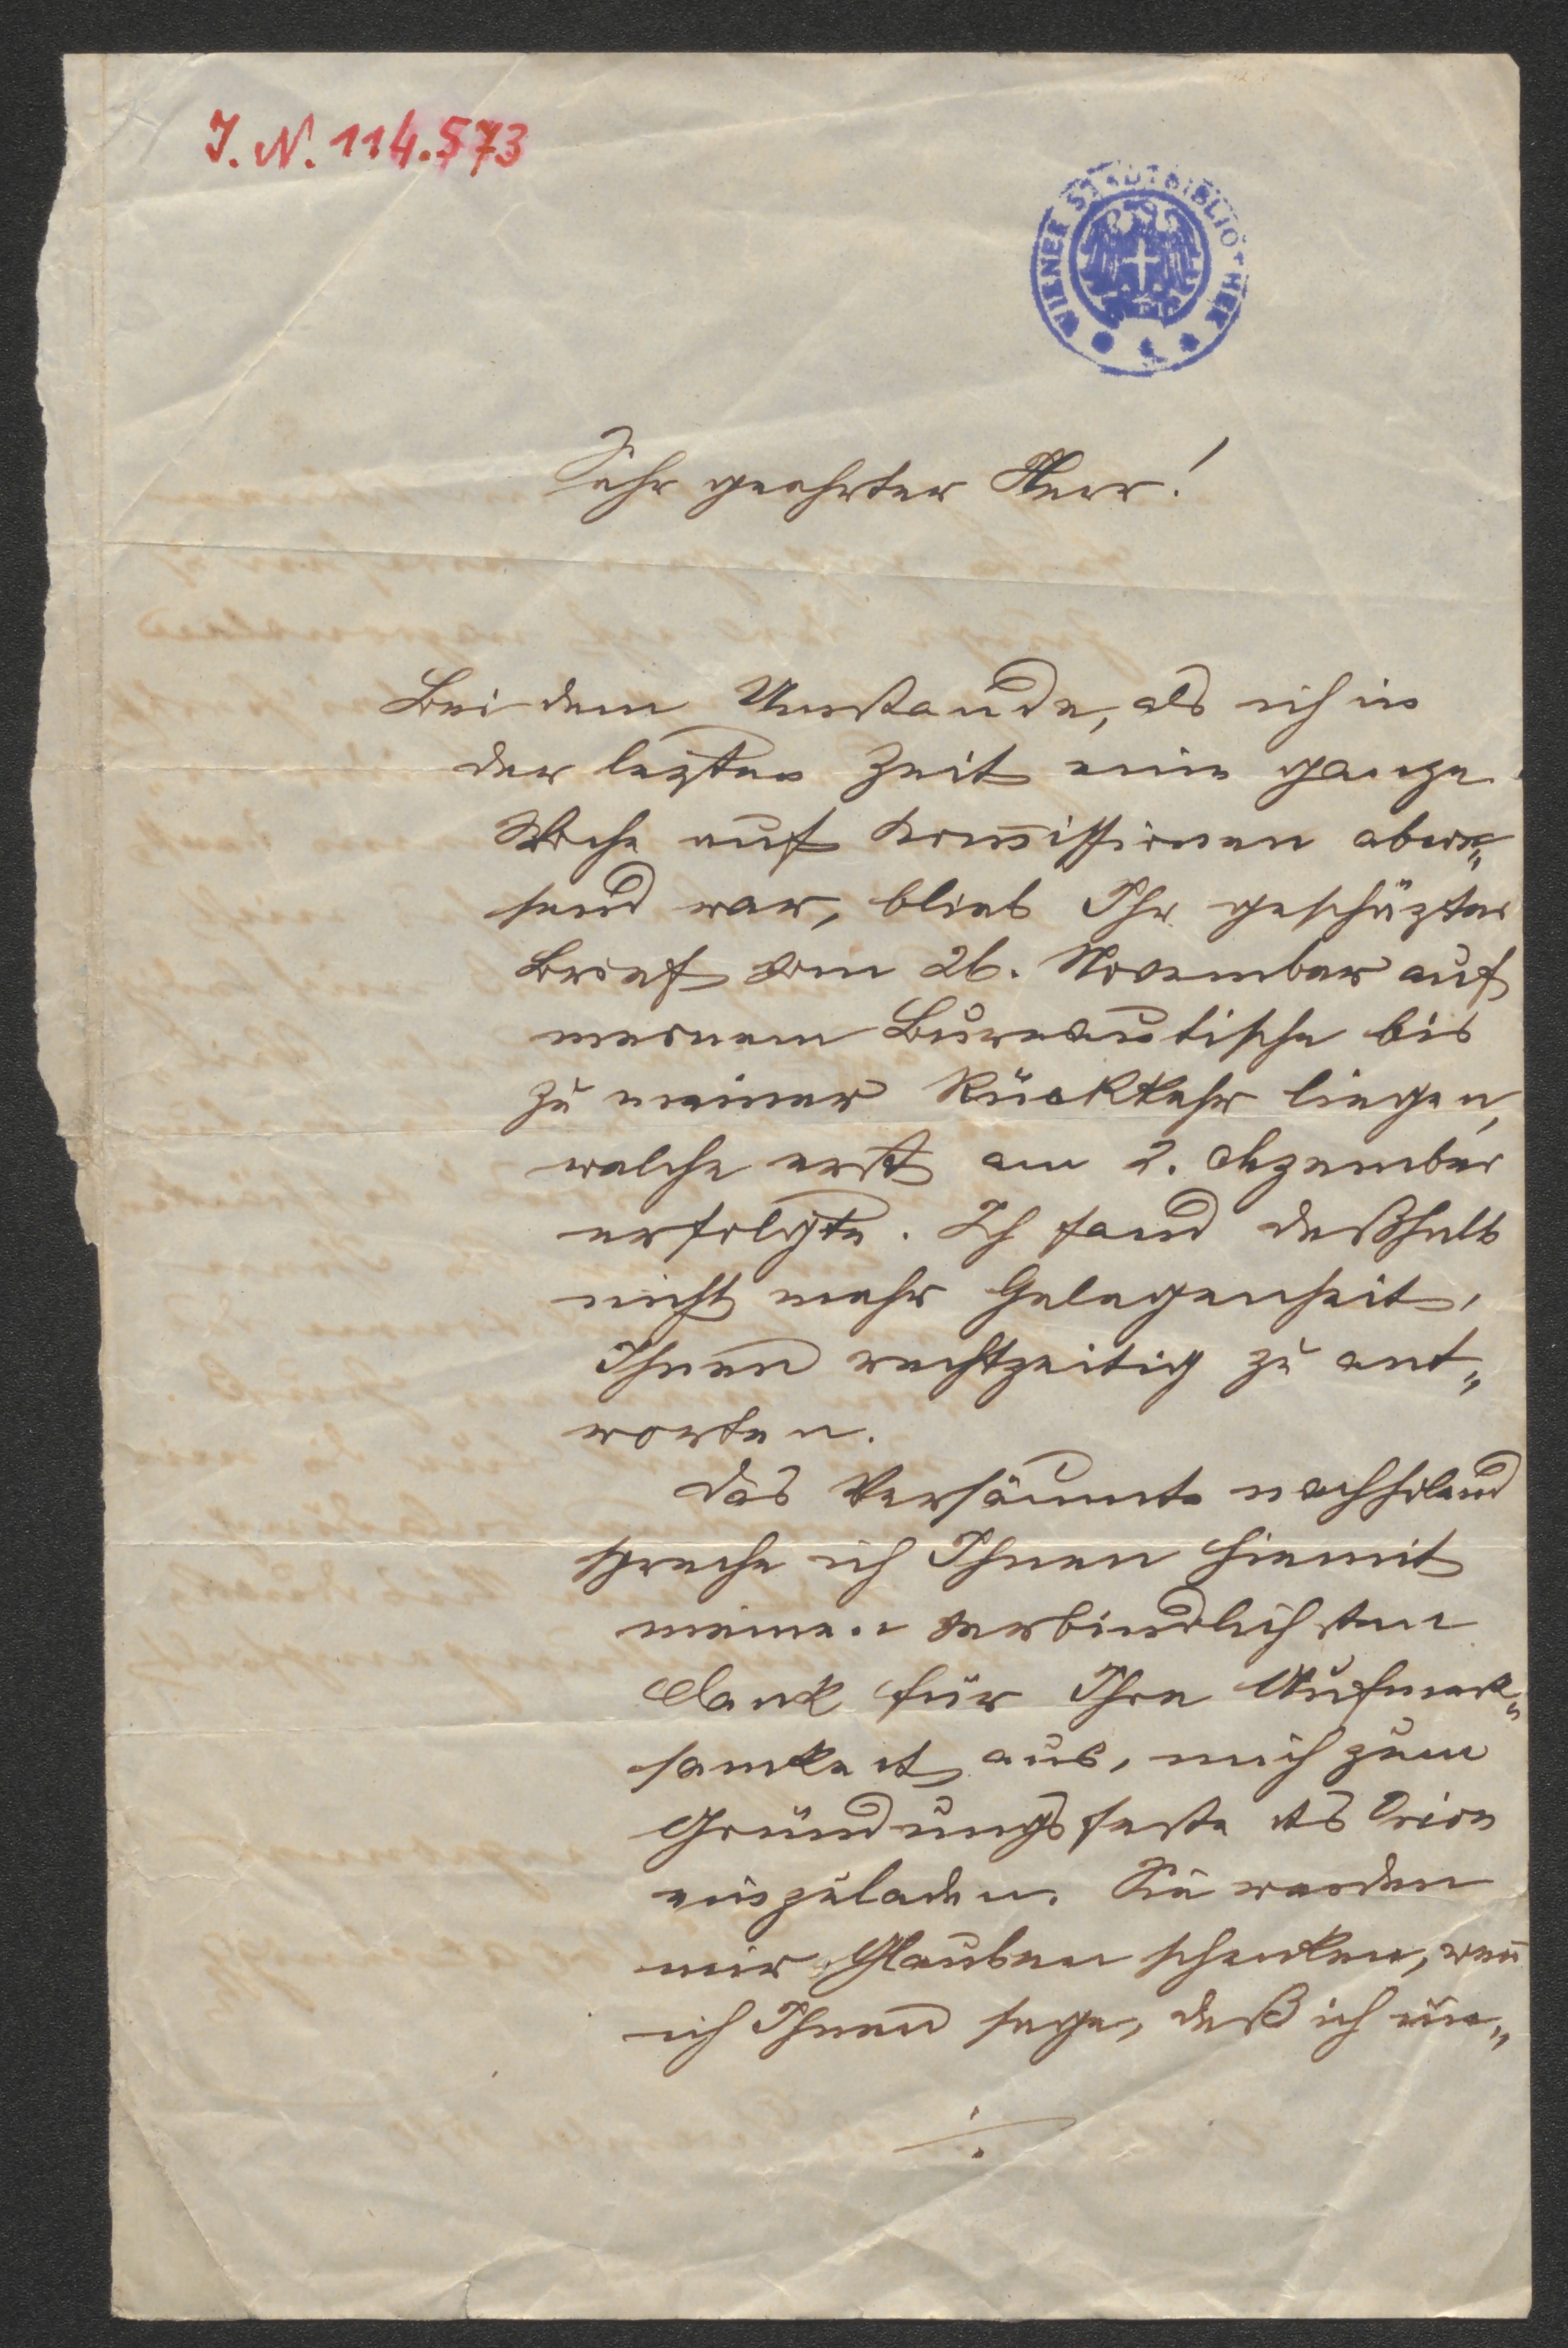 J. N. 114.573
WIENER STADTBIBLIOTHEK
Sehr geehrter Herr!
Bei dem Umstande, als ich in
der lezten Zeit eine ganze
Woche auf Kom̅issionen abwe„
send war, blieb Ihr geschäzter
Brief vom 26. November auf
meinem Bureautische bis
zu meiner Rückkehr liegen,
welche erst am 2. Dezember
erfolgte. Ich fand deßhalb
nicht mehr Gelegenheit,
Ihnen rechtzeitig zu ant„
worten.
Das Versäumte nachholend
spreche ich Ihnen hiemit
meinen verbindlichsten
Dank für Ihre Aufmerk„
samkeit aus, mich zum
Gründungsfeste des Orion
einzuladen. Sie werden
mir Glauben schenken, wen̅
ich Ihnen sage, daß ich un„
./.